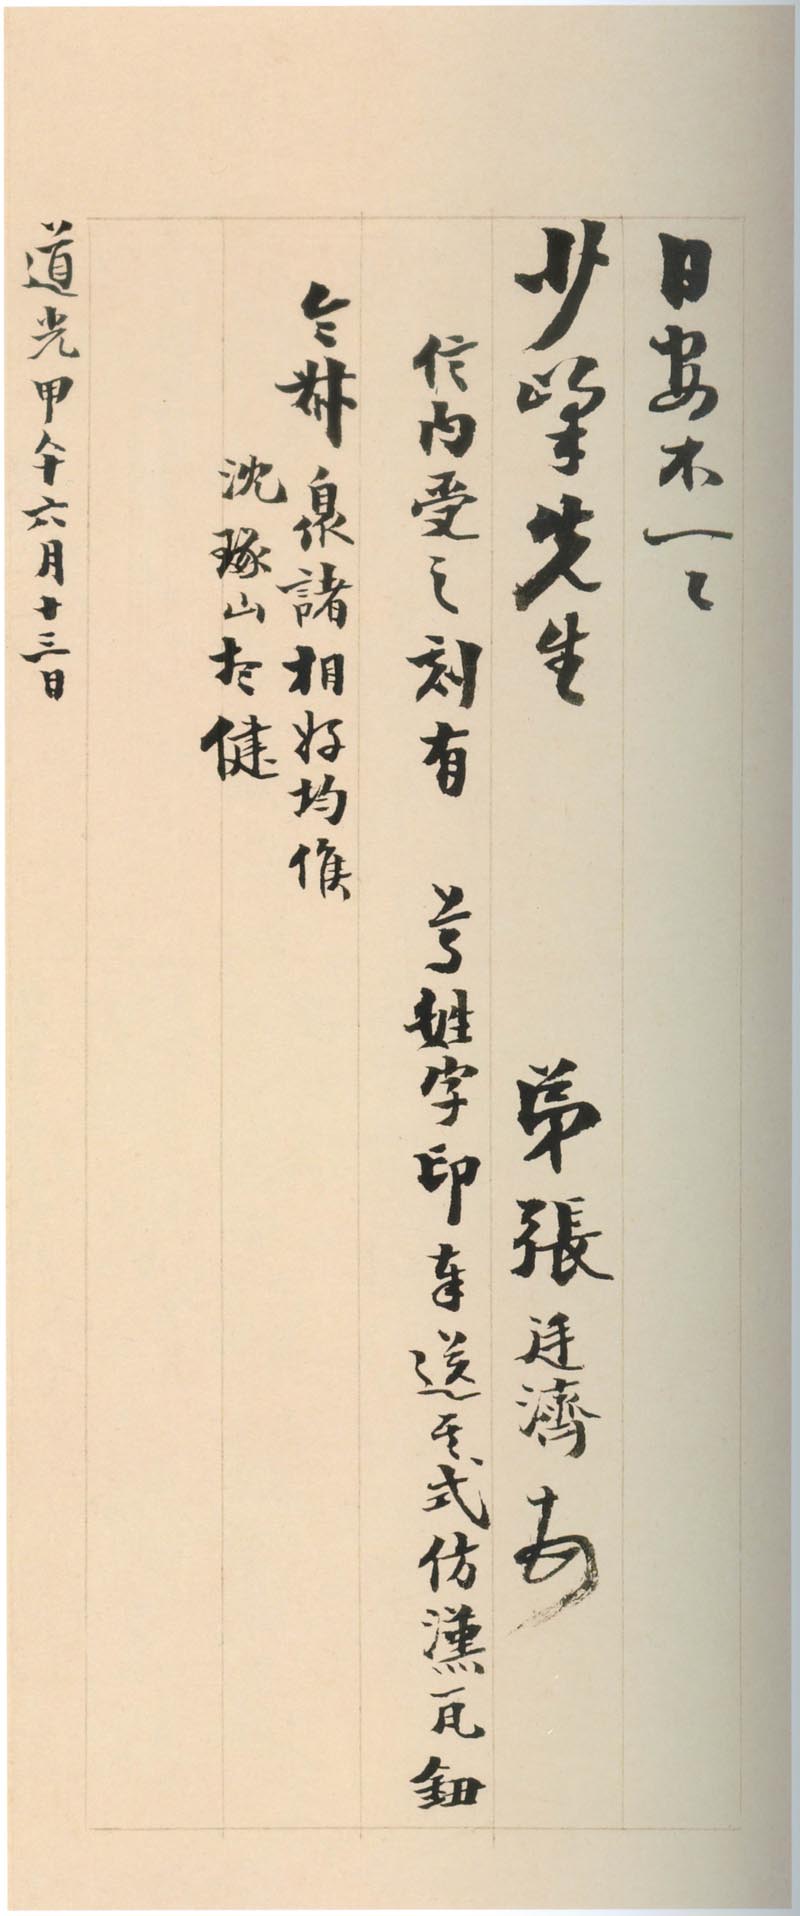 日安不一一
少峯先生 弟張廷濟頓首
信內受之刻有 尊姓字印奉送其式仿漢瓦鈕
令叔泉諸相好均候
沈琢山
健
道光甲午六月十三日